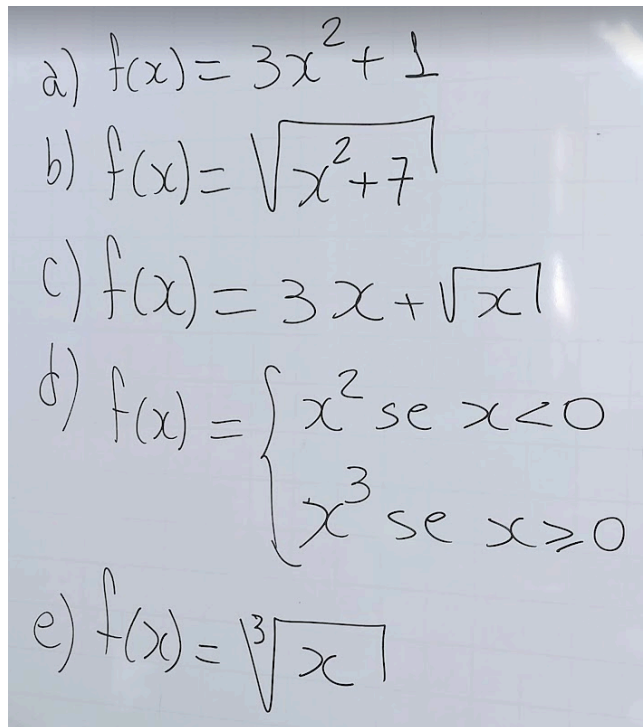 a) f(x) = 3x² + 1
b) f(x) = √(x²+7)
c) f(x) = 3x + √x
d) f(x) = { x² se x<0
x³ se x⩾0
e) f(x) = ∛x